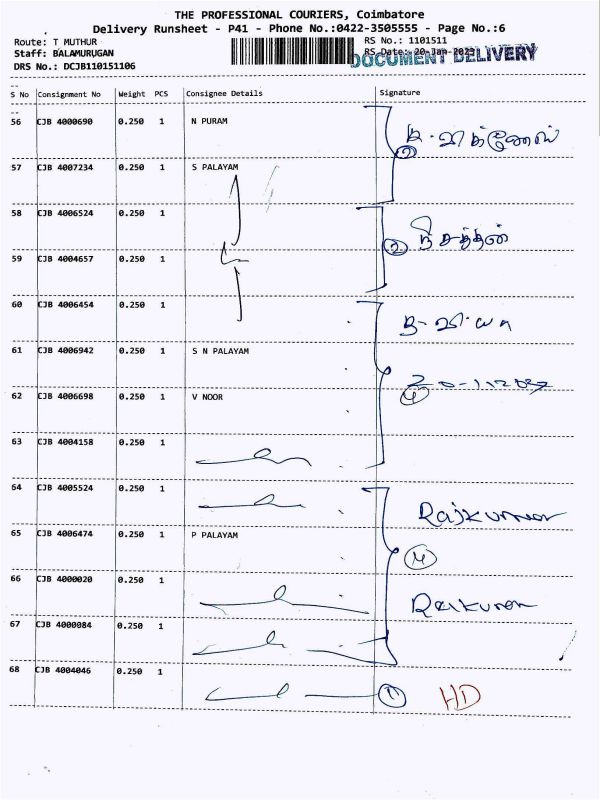 THE PROFESSIONAL COURIERS, Coimbatore
Delivery Runsheet - P41 - Phone No.:0422-3505555 - Page No.:6
Route: T MUTHUR
RS No.: 1101511
Staff: BALAMURUGAN
RS Date: 20-Jan-2023
DOCUMENT DELIVERY
DRS No.: DCJB110151106
S No Consignment No Weight PCS Consignee Details Signature
56 CJB 4000690 0.250 1 N PURAM
57 CJB 4007234 0.250 1 S PALAYAM
58 CJB 4006524 0.250 1
59 CJB 4004657 0.250 1
60 CJB 4006454 0.250 1
61 CJB 4006942 0.250 1 S N PALAYAM
62 CJB 4006698 0.250 1 V NOOR
63 CJB 4004158 0.250 1
64 CJB 4005524 0.250 1 Rajkumar
65 CJB 4006474 0.250 1 P PALAYAM
66 CJB 4000020 0.250 1
67 CJB 4000084 0.250 1
68 CJB 4004046 0.250 1 HD